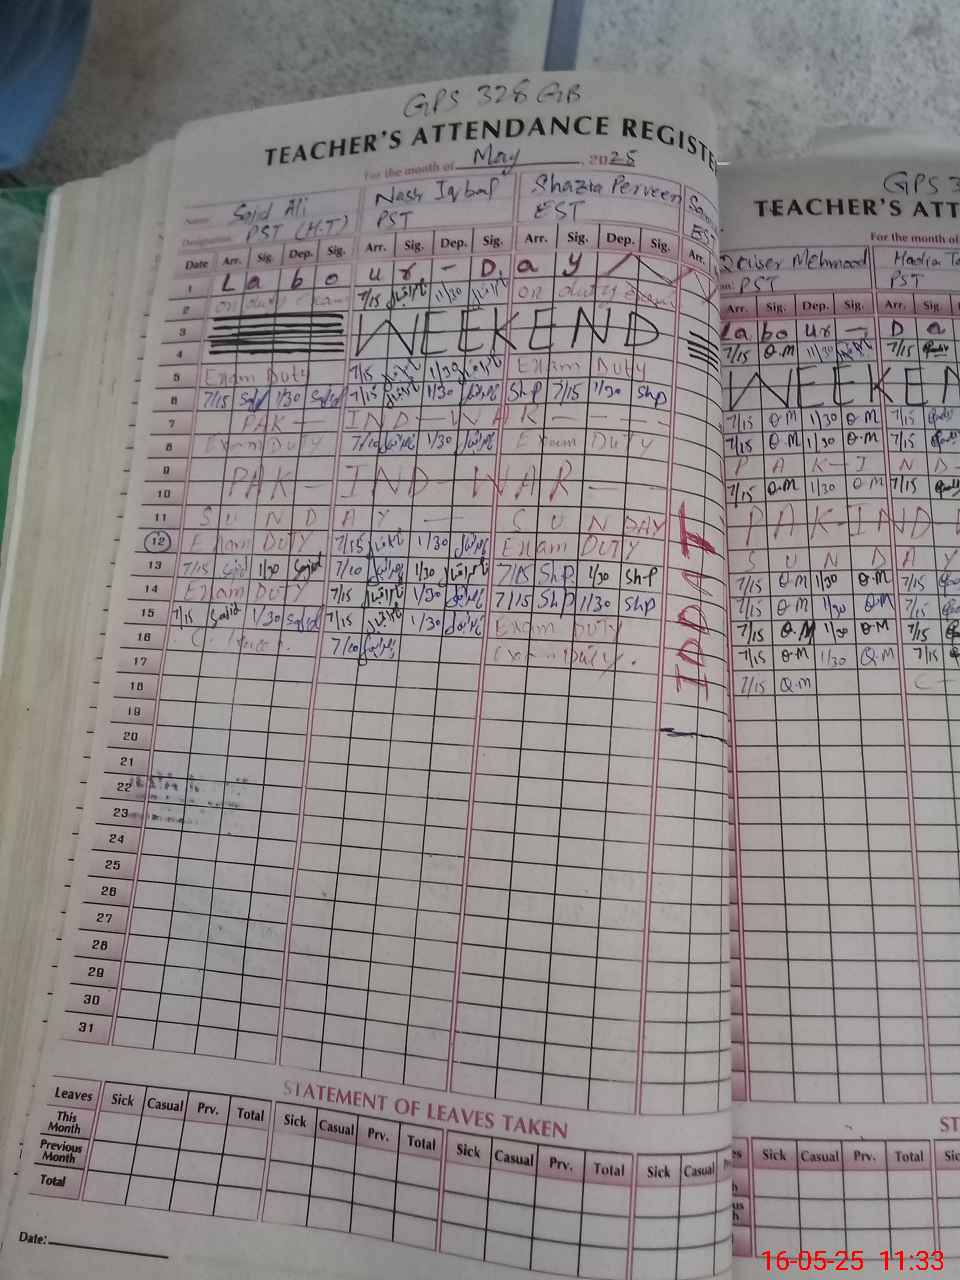 GPS 328 GB
TEACHER'S ATTENDANCE REGISTE
For the month of May, 2025
Name: Sajid Ali Nasir Iqbal Shazia Perveen
Designation: PST (H-T) PST EST EST
Date Arr. Sig. Dep. Sig. Arr. Sig. Dep. Sig. Arr. Sig. Dep. Sig. Arr.
1 L a b o u r - D a y
2 on duty exam 7/15 11/30 on duty exam
3 WEEKEND
4
5 Exam Duty 7/15 1/30 Exam Duty
6 7/15 Sajid 1/30 Sajid 7/15 1/30 Sh.P 7/15 1/30 Sh.P
7 PAK - IND - WAR - -
8 Exam DUTY 7/10 1/30 Exam DUTY
9 PAK - IND - WAR - -
10
11 S U N D A Y - S U N DAY
12 Exam DUTY 7/15 1/30 Exam DUTY
13 7/15 Sajid 1/30 Sajid 7/10 1/30 7/15 Sh.P 1/30 Sh.P
14 Exam DUTY 7/15 1/30 7/15 Sh.P 1/30 Sh.P
15 7/15 Sajid 1/30 Sajid 7/15 1/30 Exam DUTY
16 7/10 Exam Duty.
17
18
19
20
21
22
23
24
25
26
27
28
29
30
31
IDDAT
STATEMENT OF LEAVES TAKEN
Leaves Sick Casual Prv. Total Sick Casual Prv. Total Sick Casual Prv. Total Sick Casual
This Month
Previous Month
Total
Date:
GPS 3
TEACHER'S ATT
For the month of
Mehmood Hadia
PST PST
Arr. Sig. Dep. Sig. Arr. Sig.
Labo ur - D a
7/15 Q.M 11/30 7/15
WEEKEN
7/15 Q.M 1/30 Q.M 7/15
7/15 Q.M 1/30 Q.M 7/15
P A K - I N D -
7/15 Q.M 1/30 Q.M 7/15
PAK-IND
S U N D A Y
7/15 Q.M 1/30 Q.M 7/15
7/15 Q.M 1/30 Q.M 7/15
7/15 Q.M 1/30 Q.M 7/15
7/15 Q.M 1/30 Q.M 7/15
7/15 Q.M C -
ST
Sick Casual Prv. Total Sic
16-05-25 11:33